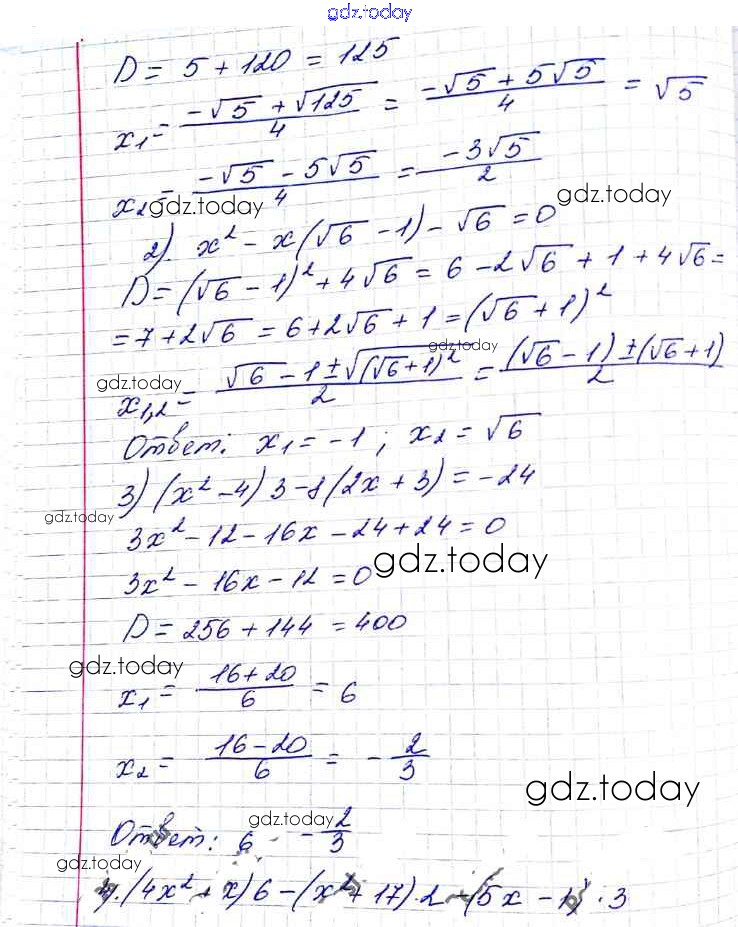 gdz.today
D = 5 + 120 = 125
x₁ = (-√5 + √125)/4 = (-√5 + 5√5)/4 = √5
x₂ = (-√5 - 5√5)/4 = (-3√5)/2
gdz.today gdz.today
2). x² - x(√6 - 1) - √6 = 0
D = (√6 - 1)² + 4√6 = 6 - 2√6 + 1 + 4√6 =
= 7 + 2√6 = 6 + 2√6 + 1 = (√6 + 1)²
gdz.today
gdz.today
x₁,₂ = (√6 - 1 ± √(√6+1)²)/2 = ((√6 - 1) ± (√6 + 1))/2
Ответ: x₁ = -1; x₂ = √6
3) (x² - 4) 3 - 8(2x + 3) = -24
gdz.today
3x² - 12 - 16x - 24 + 24 = 0
gdz.today
3x² - 16x - 12 = 0
D = 256 + 144 = 400
gdz.today
x₁ = (16 + 20)/6 = 6
x₂ = (16 - 20)/6 = -2/3
gdz.today
gdz.today
Ответ: 6 -2/3
gdz.today
4). (4x² + x) 6 - (x² + 17) · 2 = (5x - 1) · 3